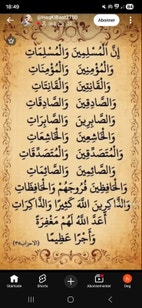 18:49
Abonnet
إِنَّ الْمُسْلِمِينَ وَالْمُسْلِمَاتِ
وَالْمُؤْمِنِينَ وَالْمُؤْمِنَاتِ
وَالْقَانِتِينَ وَالْقَانِتَاتِ
وَالصَّادِقِينَ وَالصَّادِقَاتِ
وَالصَّابِرِينَ وَالصَّابِرَاتِ
وَالْخَاشِعِينَ وَالْخَاشِعَاتِ
وَالْمُتَصَدِّقِينَ وَالْمُتَصَدِّقَاتِ
وَالصَّائِمِينَ وَالصَّائِمَاتِ
وَالْحَافِظِينَ فُرُوجَهُمْ وَالْحَافِظَاتِ
وَالذَّاكِرِينَ اللَّهَ كَثِيرًا وَالذَّاكِرَاتِ
أَعَدَّ اللَّهُ لَهُمْ مَغْفِرَةً
وَأَجْرًا عَظِيمًا
(الأحزاب٣٥)
Startside Shorts Abonnementer Deg